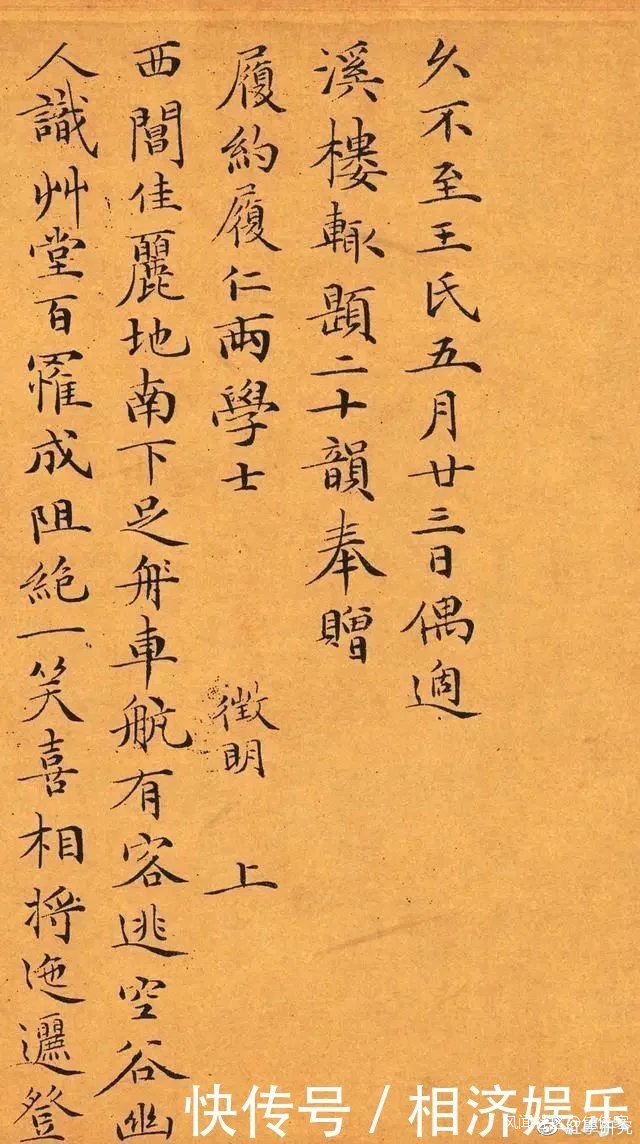 久不至王氏五月廿三日偶過
溪樓輙題二十韻奉贈
履約履仁兩學士
徵明 上
西閶佳麗地南下足舟車航有客逃空谷幽
人識艸堂百罹成阻絕一笑喜相將迤邐登
快传号/相济娱乐